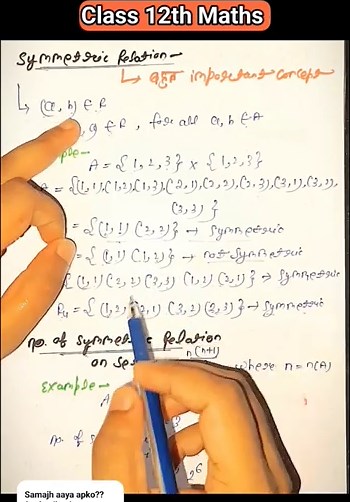 Class 12th Maths
Symmetric Relation -
↳ बहुत important concept
↳ (a, b) ∈ R
, a) ∈ R, for all a, b ∈ A
ple -
A = {1, 2, 3} × {1, 2, 3}
= {(1,1) (1,2) (1,3) (2,1) (2,2) (2,3) (3,1) (3,2),
(3,3)}
= {(1,1) (2,2)} → Symmetric
= {(1,1) (1,2)} → not Symmetric
{(1,1) (2,2) (3,3) (1,2) (2,1)} → Symmetric
R4 = {(1,2) (2,1) (3,2) (2,3)} → Symmetric
no. of Symmetric Relation
on Se
n(n+1)
where n = n(A)
Example -
A
no. of S
2^6
Samajh aaya apko??